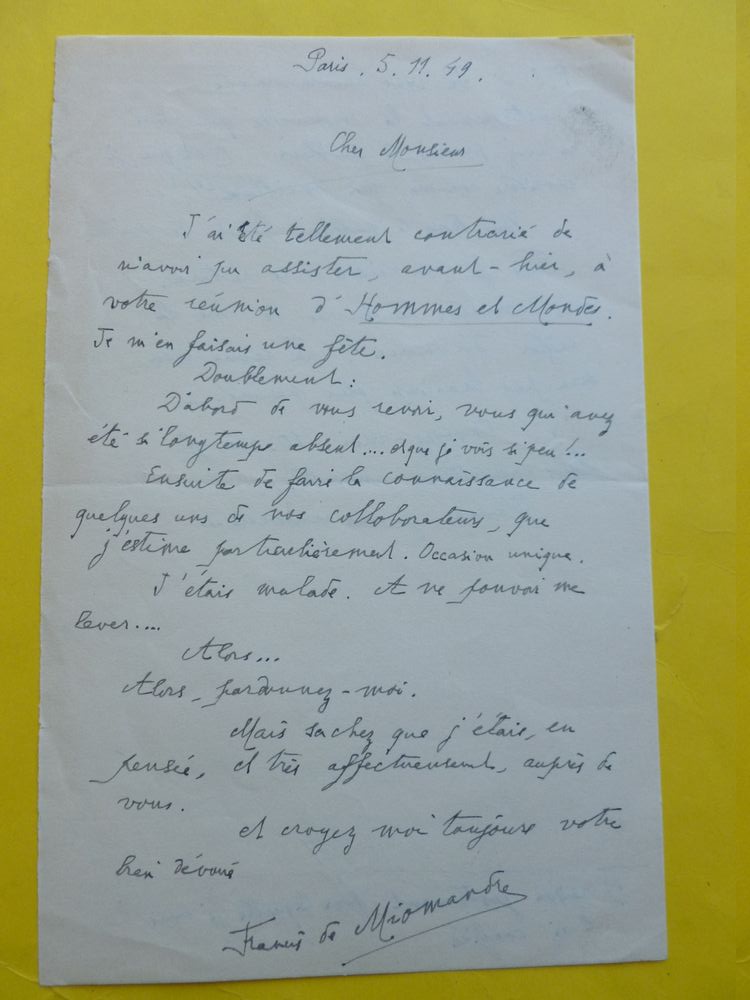 Paris. 5. 11. 49.
Cher Monsieur
J'ai été tellement contrarié de
n'avoir pu assister, avant-hier, à
votre réunion d'Hommes et Mondes.
Je m'en faisais une fête.
Doublement :
D'abord de vous revoir, vous qui avez
été si longtemps absent... et que je vois si peu !...
Ensuite de faire la connaissance de
quelques uns de vos colloborateurs, que
j'estime particulièrement. Occasion unique.
J'étais malade. A ne pouvoir me
lever....
Alors...
Alors, pardonnez-moi.
Mais sachez que j'étais, en
pensée, et très affectueusement, auprès de
vous.
et croyez moi toujours votre
bien dévoué
Francis de Miomandre